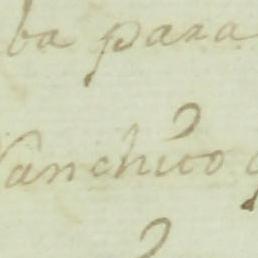 ba para
anchico